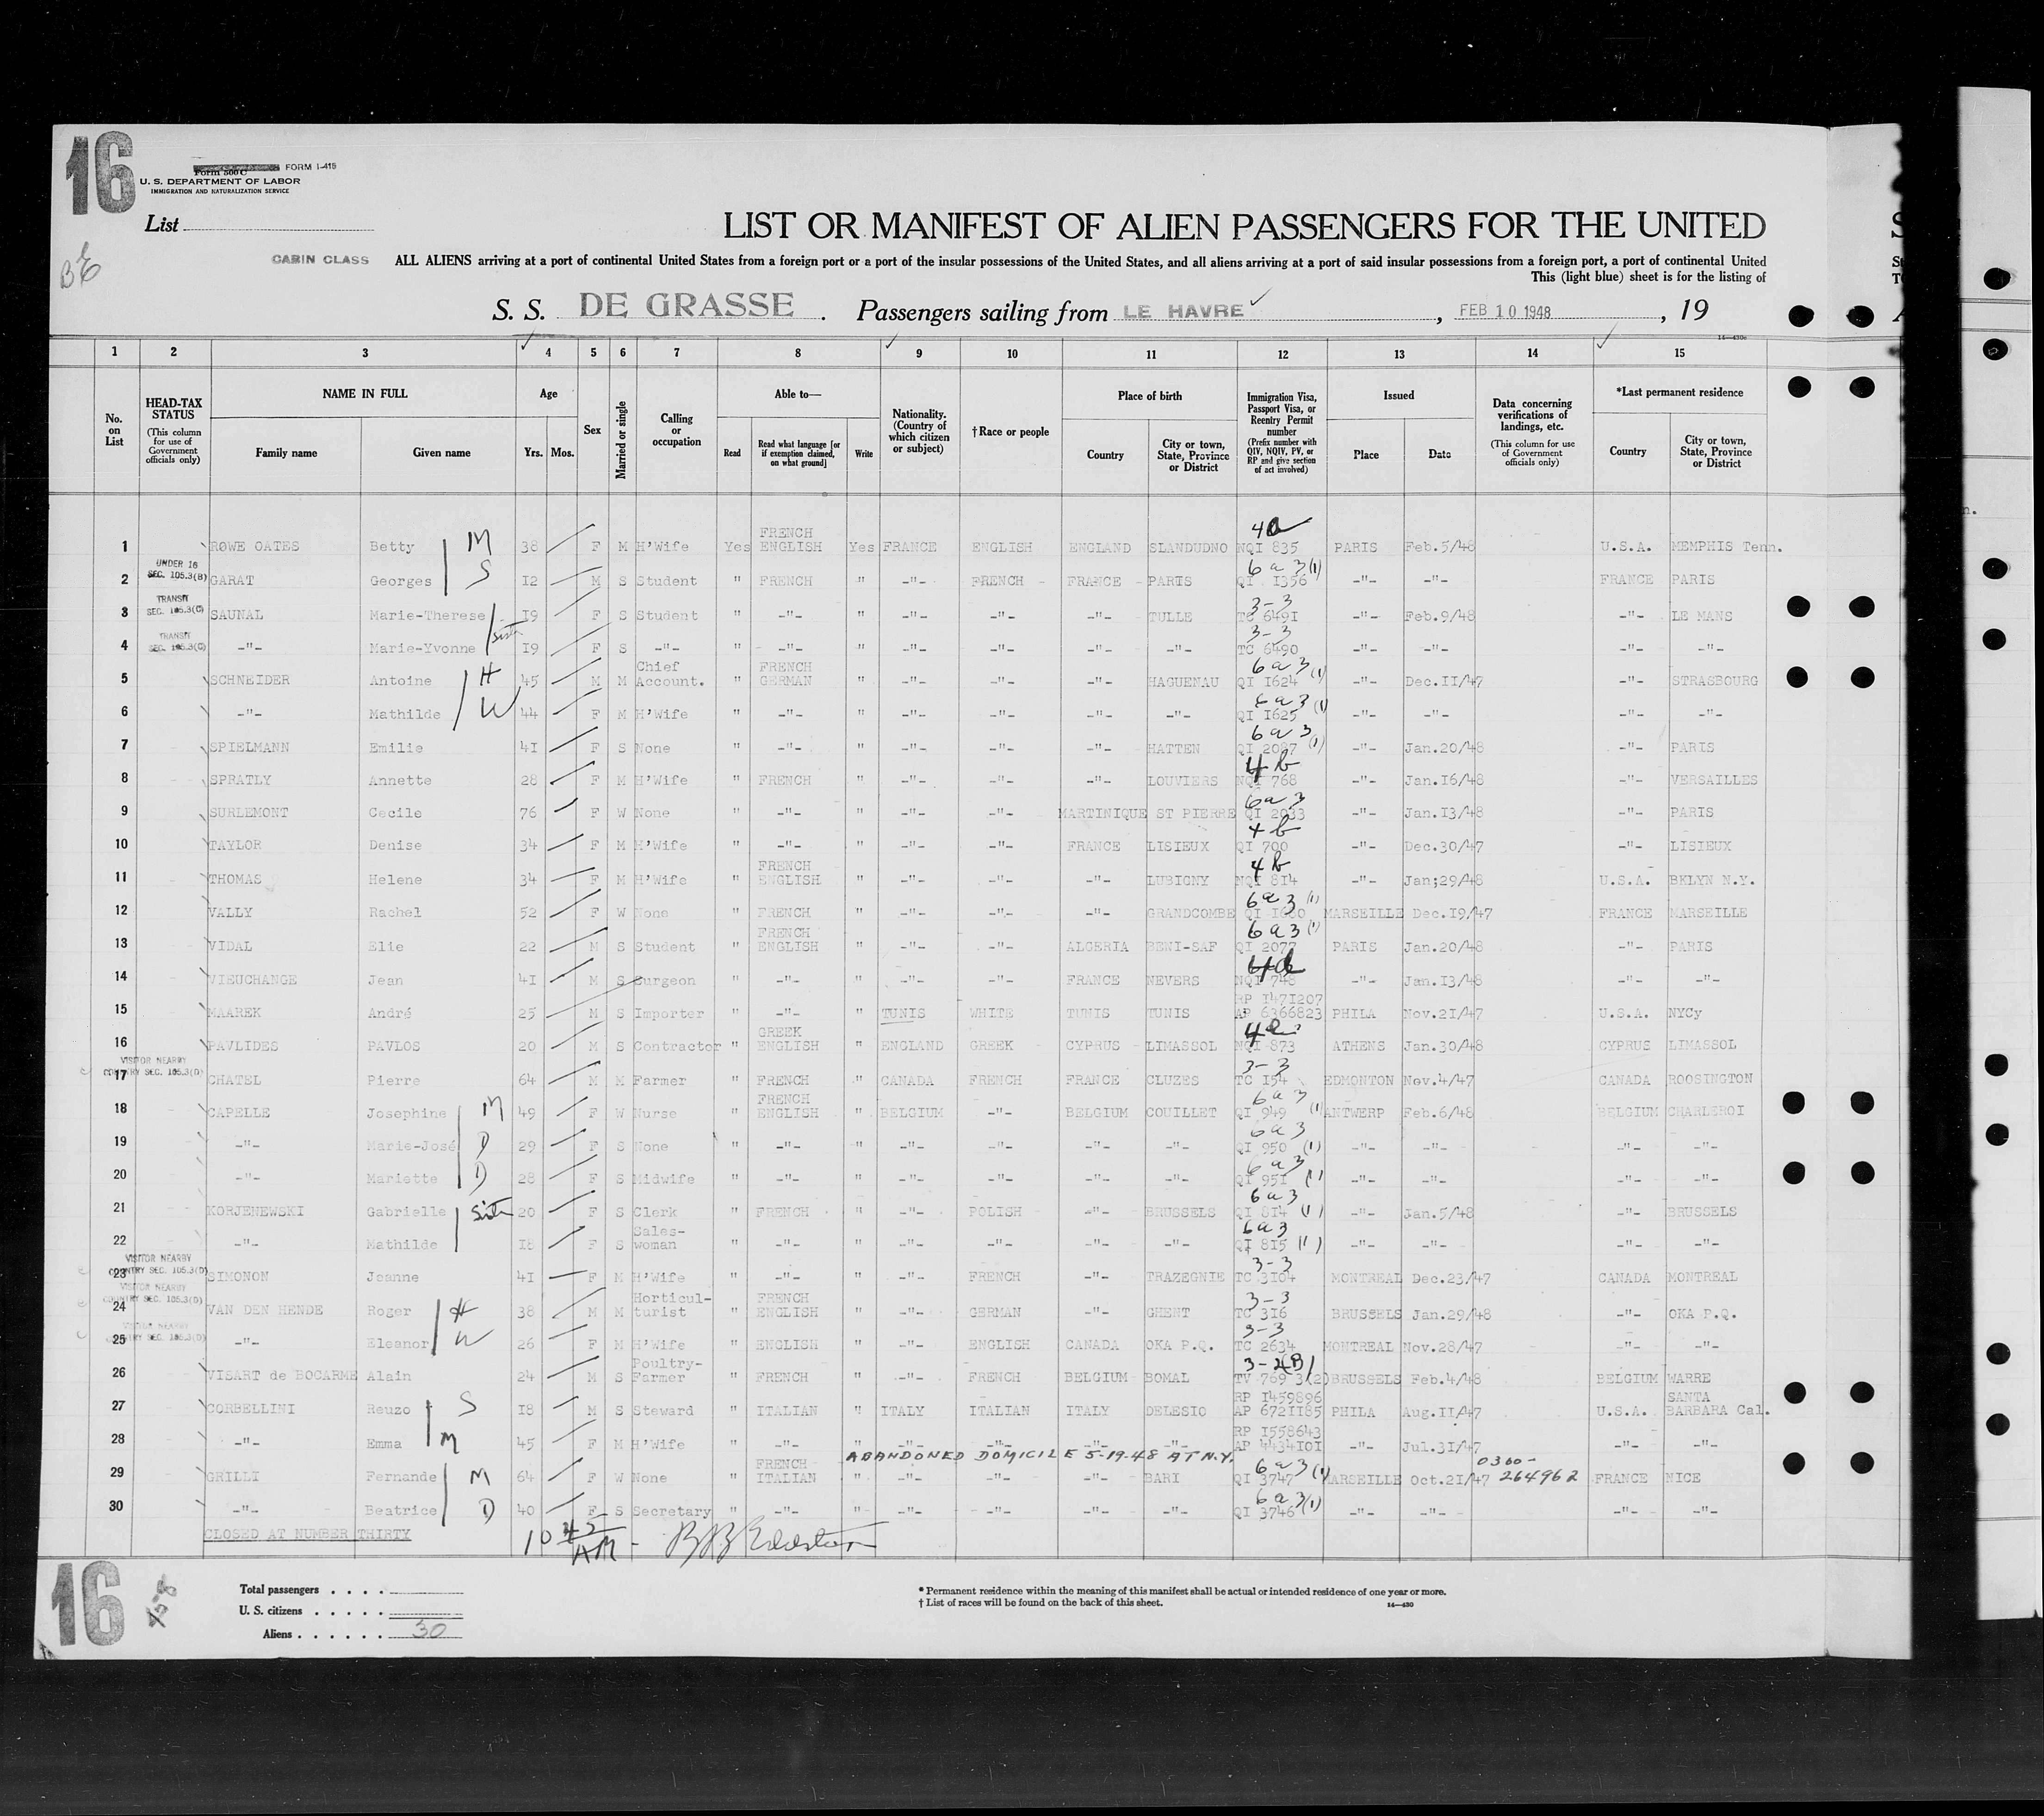 16
Form 500 C FORM I-415
U. S. DEPARTMENT OF LABOR
IMMIGRATION AND NATURALIZATION SERVICE
List
LIST OR MANIFEST OF ALIEN PASSENGERS FOR THE UNITED
CABIN CLASS ALL ALIENS arriving at a port of continental United States from a foreign port or a port of the insular possessions of the United States, and all aliens arriving at a port of said insular possessions from a foreign port, a port of continental United
This (light blue) sheet is for the listing of
S. S. DE GRASSE . Passengers sailing from LE HAVRE , FEB 10 1948 , 19
1 2 3 4 5 6 7 8 9 10 11 12 13 14 15
No. on List
HEAD-TAX STATUS (This column for use of Government officials only)
NAME IN FULL Family name Given name
Age Yrs. Mos.
Sex
Married or single
Calling or occupation
Able to— Read Read what language [or if exemption claimed, on what ground] Write
Nationality. (Country of which citizen or subject)
†Race or people
Place of birth Country City or town, State, Province or District
Immigration Visa, Passport Visa, or Reentry Permit number (Prefix number with QIV, NQIV, PV, or RP and give section of act involved)
Issued Place Date
Data concerning verifications of landings, etc. (This column for use of Government officials only)
*Last permanent residence Country City or town, State, Province or District
1 ROWE OATES Betty M 38 F M H'Wife Yes FRENCH ENGLISH Yes FRANCE ENGLISH ENGLAND SLANDUDNO NQI 835 PARIS Feb.5/48 U.S.A. MEMPHIS Tenn.
2 UNDER 16 SEC. 105.3(B) GARAT Georges S 12 M S Student " FRENCH " -"- FRENCH FRANCE PARIS 6 a 3 (1) QI 1356 -"- -"- FRANCE PARIS
3 TRANSIT SEC. 105.3(C) SAUNAL Marie-Therese 19 F S Student " -"- " -"- -"- -"- TULLE 3-3 TC 6491 -"- Feb.9/48 -"- LE MANS
4 TRANSIT SEC. 105.3(C) -"- Marie-Yvonne 19 F S -"- " -"- " -"- -"- -"- -"- 3-3 TC 6490 -"- -"- -"- -"-
5 SCHNEIDER Antoine H 45 M M Chief Account. " FRENCH GERMAN " -"- -"- -"- HAGUENAU 6 a 3 (1) QI 1624 -"- Dec.11/47 -"- STRASBOURG
6 -"- Mathilde W 44 F M H'Wife " -"- " -"- -"- -"- -"- 6 a 3 (1) QI 1625 -"- -"- -"- -"-
7 SPIELMANN Emilie 41 F S None " -"- " -"- -"- -"- HATTEN 6 a 3 (1) QI 2087 -"- Jan.20/48 -"- PARIS
8 SPRATLY Annette 28 F M H'Wife " FRENCH " -"- -"- -"- LOUVIERS 4 b NQI 768 -"- Jan.16/48 -"- VERSAILLES
9 SURLEMONT Cecile 76 F W None " -"- " -"- -"- MARTINIQUE ST PIERRE 6 a 3 QI 2033 -"- Jan.13/48 -"- PARIS
10 TAYLOR Denise 34 F M H'Wife " -"- " -"- -"- FRANCE LISIEUX 4 b QI 700 -"- Dec.30/47 -"- LISIEUX
11 THOMAS Helene 34 F M H'Wife " FRENCH ENGLISH " -"- -"- -"- LUBIGNY 4 b NQI 814 -"- Jan;29/48 U.S.A. BKLYN N.Y.
12 VALLY Rachel 52 F W None " FRENCH " -"- -"- -"- GRANDCOMBE 6 a 3 (1) QI MARSEILLE Dec.19/47 FRANCE MARSEILLE
13 VIDAL Elie 22 M S Student " FRENCH ENGLISH " -"- -"- ALGERIA BENI-SAF 6 a 3 (1) QI 2077 PARIS Jan.20/48 -"- PARIS
14 VIEUCHANGE Jean 41 M S Surgeon " -"- " -"- -"- FRANCE NEVERS NQI 746 -"- Jan.13/48 -"- -"-
15 MAAREK André 25 M S Importer " -"- " TUNIS WHITE TUNIS TUNIS RP 1471207 AP 6366823 PHILA Nov.21/47 U.S.A. NYCy
16 PAVLIDES PAVLOS 20 M S Contractor " GREEK ENGLISH " ENGLAND GREEK CYPRUS LIMASSOL NQI 873 ATHENS Jan.30/48 CYPRUS LIMASSOL
17 VISITOR NEARBY COUNTRY SEC. 105.3(D) CHATEL Pierre 64 M M Farmer " FRENCH " CANADA FRENCH FRANCE CLUZES 3-3 TC 154 EDMONTON Nov.4/47 CANADA ROOSINGTON
18 CAPELLE Josephine M 49 F W Nurse " FRENCH ENGLISH " BELGIUM -"- BELGIUM COUILLET 6 a 3 (1) QI 949 ANTWERP Feb.6/48 BELGIUM CHARLEROI
19 -"- Marie-José D 29 F S None " -"- " -"- -"- -"- -"- 6 a 3 QI 950 (1) -"- -"- -"- -"-
20 -"- Mariette D 28 F S Midwife " -"- " -"- -"- -"- -"- 6 a 3 QI 951 (1) -"- -"- -"- -"-
21 KORJENEWSKI Gabrielle 20 F S Clerk " FRENCH " -"- POLISH -"- BRUSSELS 6 a 3 QI 814 (1) -"- Jan.5/48 -"- BRUSSELS
22 -"- Mathilde 18 F S Sales-woman " -"- " -"- -"- -"- -"- 6 a 3 QI 815 (1) -"- -"- -"- -"-
23 VISITOR NEARBY COUNTRY SEC. 105.3(D) SIMONON Jeanne 41 F M H'Wife " -"- " -"- FRENCH -"- TRAZEGNIE 3-3 TC 3104 MONTREAL Dec.23/47 CANADA MONTREAL
24 VISITOR NEARBY COUNTRY SEC. 105.3(D) VAN DEN HENDE Roger H 38 M M Horticul-turist " FRENCH ENGLISH " -"- GERMAN -"- GHENT 3-3 TC 316 BRUSSELS Jan.29/48 -"- OKA P.Q.
25 VISITOR NEARBY COUNTRY SEC. 105.3(D) -"- Eleanor W 26 F M H'Wife " ENGLISH " -"- ENGLISH CANADA OKA P.Q. 3-3 TC 2634 MONTREAL Nov.28/47 -"- -"-
26 VISART de BOCARME Alain 24 M S Poultry-Farmer " FRENCH " -"- FRENCH BELGIUM BOMAL TV 769 3(2) BRUSSELS Feb.4/48 BELGIUM WARRE
27 CORBELLINI Reuzo S 18 M S Steward " ITALIAN " ITALY ITALIAN ITALY DELESIO RP 1459896 AP 6721185 PHILA Aug.11/47 U.S.A. SANTA BARBARA Cal.
28 -"- Emma M 45 F M H'Wife " -"- " -"- -"- -"- -"- RP 1558643 AP 4434101 -"- Jul.31/47 -"- -"-
ABANDONED DOMICILE 5-19-48 AT N.Y.
29 GRILLI Fernande M 64 F W None " FRENCH ITALIAN " -"- -"- -"- BARI 6 a 3 (1) QI 3747 MARSEILLE Oct.21/47 0300-264962 FRANCE NICE
30 -"- Beatrice D 40 F S Secretary " -"- " -"- -"- -"- -"- 6 a 3 (1) QI 3746 -"- -"- -"- -"-
CLOSED AT NUMBER THIRTY
10 45 AM -
16
Total passengers . . . .
U. S. citizens . . . . .
Aliens . . . . . . 30
* Permanent residence within the meaning of this manifest shall be actual or intended residence of one year or more.
† List of races will be found on the back of this sheet.
14—430